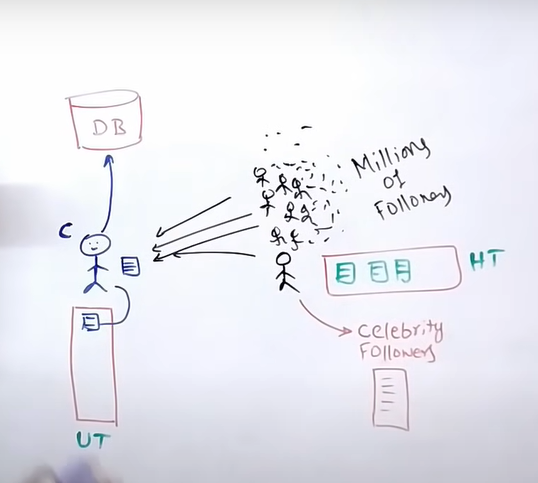 DB
Millions
of
Followers
C
HT
Celebrity
Followers
UT